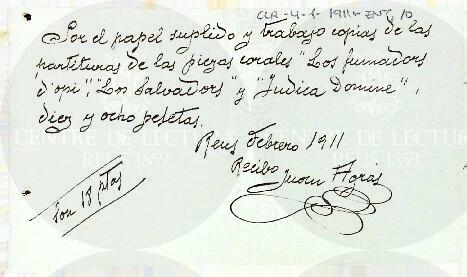 CLR-4-1-1911-ENT/10
Por el papel suplido y trabajo copias de las
partituras de las piezas corales "Los fumadors
d'opi", "Los Salvadors" y "Judica Domine",
diez y ocho pesetas.
Reus Febrero 1911
Recibo
Juan
Son 18 ptas
CENTRE DE LECTURA
REUS 1859
CENTRE DE LECTURA
REUS 1859